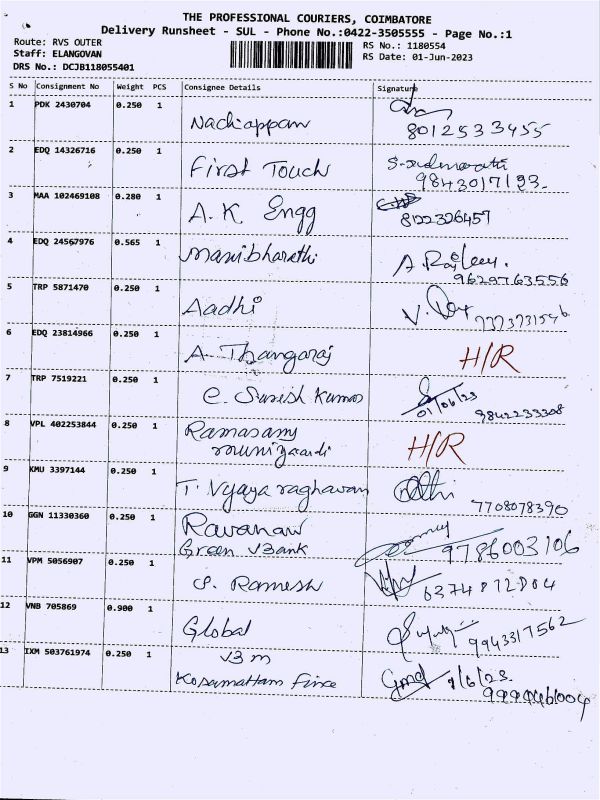 THE PROFESSIONAL COURIERS, COIMBATORE
Delivery Runsheet - SUL - Phone No.:0422-3505555 - Page No.:1
Route: RVS OUTER
RS No.: 1180554
Staff: ELANGOVAN
RS Date: 01-Jun-2023
DRS No.: DCJB118055401
S No Consignment No Weight PCS Consignee Details Signature
1 PDK 2430704 0.250 1 Nachiappan 8012533455
2 EDQ 14326716 0.250 1 First Touch 9843017193
3 MAA 102469108 0.280 1 A.K Engg 8122326457
4 EDQ 24567976 0.565 1 manibharathi 9629763556
5 TRP 5871470 0.250 1 Aadhi
6 EDQ 23814966 0.250 1 A. Thangaraj H/R
7 TRP 7519221 0.250 1 C. Suresh Kumar 01/06/23
8 VPL 402253844 0.250 1 Ramasamy H/R
9 KMU 3397144 0.250 1 T. Vyjaya raghavan 7708078390
10 GGN 11330360 0.250 1 Ravanan
Green Bank 9786003106
11 VPM 5056907 0.250 1 S. Ramesh
12 VNB 705869 0.900 1 Global 9943317562
13 IXM 503761974 0.250 1
Kosamattam Fince